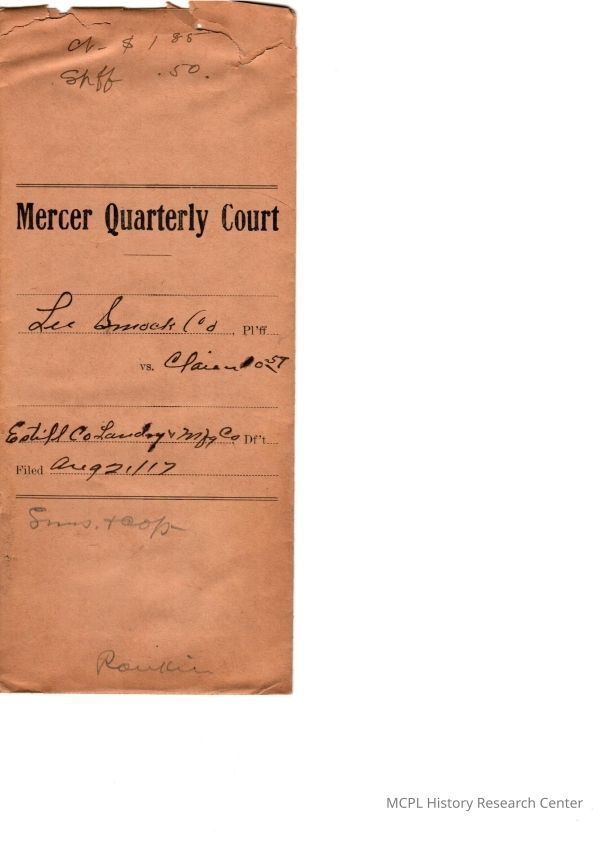 Ck $ 1 85
Shff .50.
Mercer Quarterly Court
Lee Smock Co , Pl'ff
vs.
Estill Co Laundry & Mfg Co Df't.
Filed Aug 21/17
Sms. + cop
Rankin
MCPL History Research Center